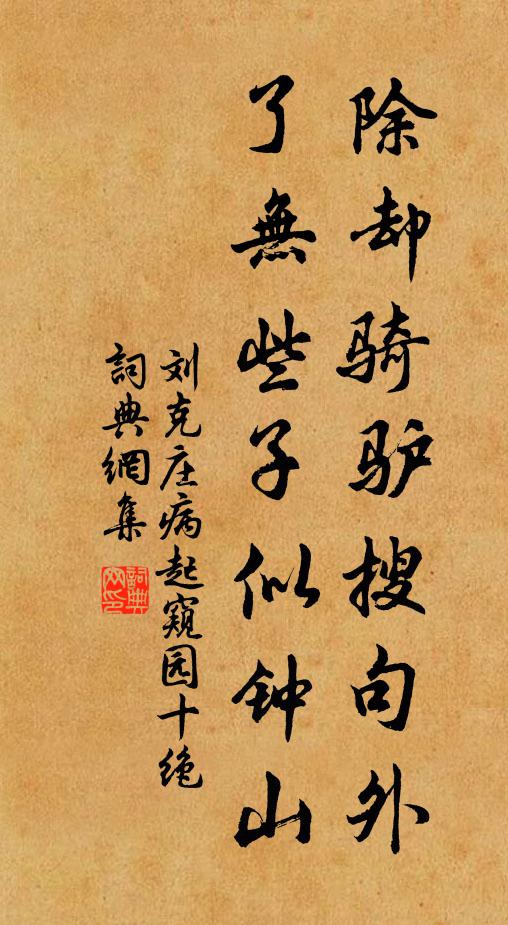 除却骑驴搜句外
了無些子似钟山
刘克庄病起窥园十绝
詞典網集
詞典
网印